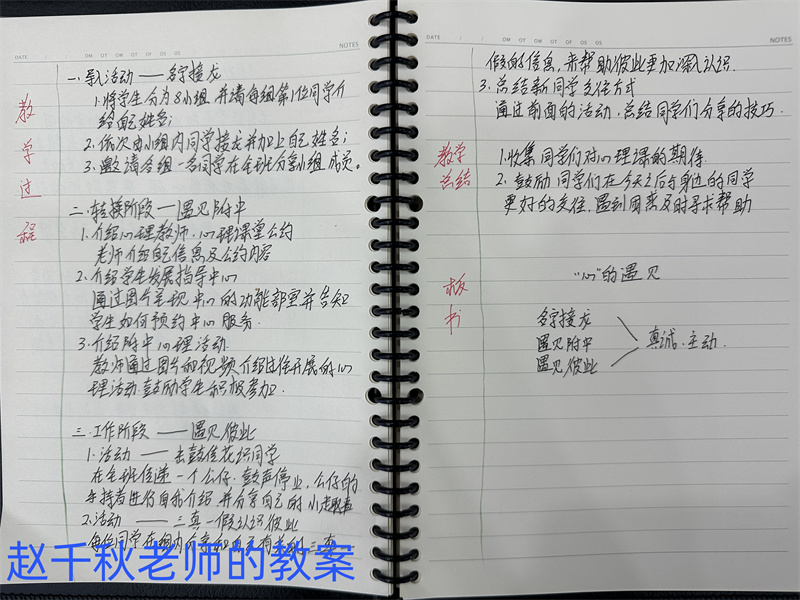 DATE / / OM OT OW OT OF OS OS NOTES
教学过程
一.导入活动——名字接龙
1.将学生分为8小组,并请每组第1位同学介
绍自己姓名;
2.依次由小组内同学接龙并加上自己姓名;
3.邀请各组一名同学在全班分享小组成员。
二.转换阶段——遇见附中
1.介绍心理教师、心理课堂公约
老师介绍自己信息及公约内容
2.介绍学生发展指导中心
通过图片呈现中心的功能部室并告知
学生如何预约中心服务.
3.介绍附中心理活动.
教师通过图片和视频介绍过往开展的心
理活动,鼓励学生积极参加.
三.工作阶段——遇见彼此
1.活动——击鼓传花识同学
在全班传递一个公仔.鼓声停止,公仔的
手持者进行自我介绍,并分享自己的小
2.活动——三真一假认识彼此
每位同学在组内分享和自己有关的三真
赵千秋老师的教案
DATE / / OM OT OW OT OF OS OS NOTES
一假的信息,来帮助彼此更加深入认识.
3.总结新同学交往方式
通过前面的活动,总结同学们分享的技巧.
教学总结
1.收集同学们对心理课的期待.
2.鼓励同学们在今天之后与身边的同学
更好的交往,遇到困惑及时寻求帮助
板书
“心”的遇见
名字接龙
遇见附中
遇见彼此
真诚、主动.